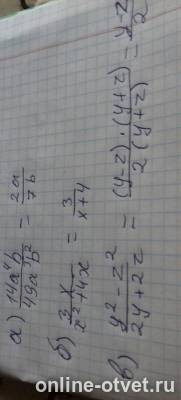 а) 14a⁴b / 49a³b² = 2a / 7b
б) 3x / x² + 4x = 3 / x+4
в) y² - z² / 2y + 2z = (y-z)·(y+z) / 2(y+z) = y-z / 2
online-otvet.ru